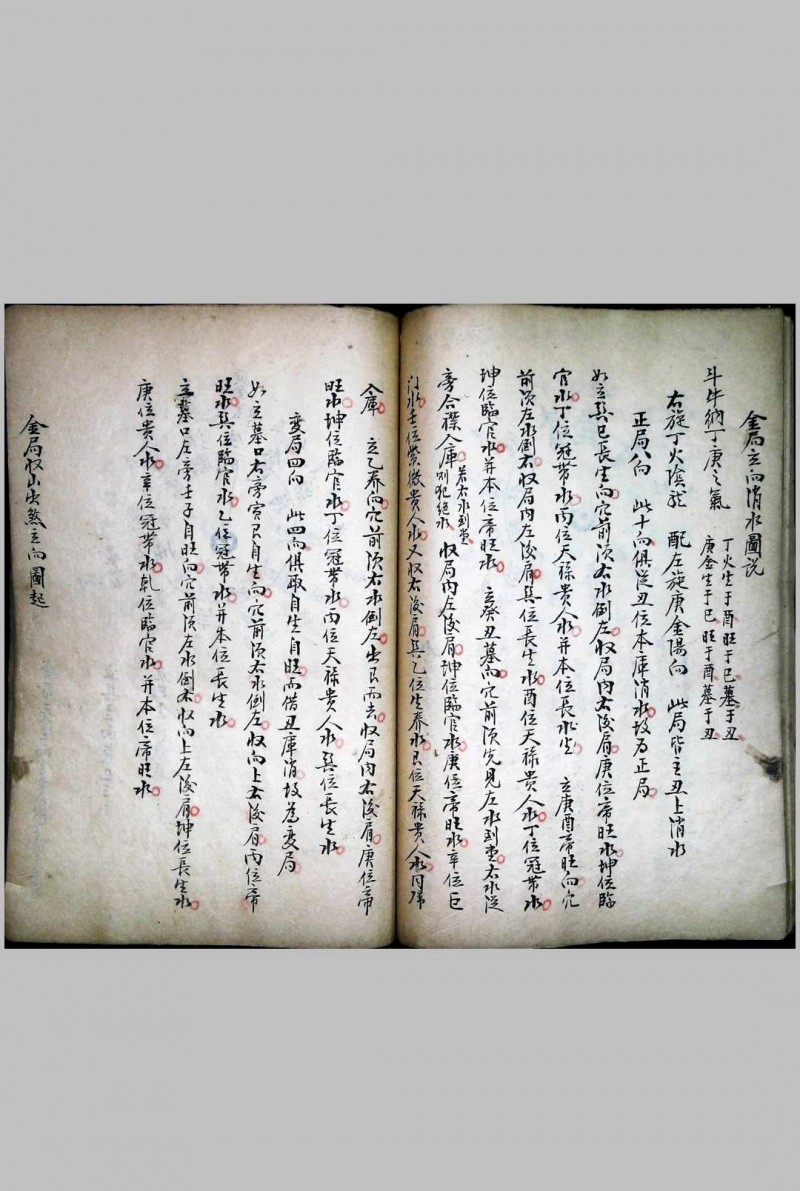 金局立向消水圖說
斗牛納丁庚之氣 丁火生于酉旺于巳墓于丑
庚金生于巳旺于酉墓于丑
右旋丁火陰龍 配左旋庚金陽向 此局皆主丑上消水
正局八向 此十向俱從丑位本庫消水故为正局
如立巽巳長生向穴前須右水倒左收局内右後肩庚位帝旺水坤位臨
官水丁位冠带水丙位天祿貴人水并本位長生水 立庚酉帝旺向穴
前須左水倒右收局内左後肩巽位長生水酉位天祿貴人水丁位冠带水
坤位臨官水并本位帝旺水 立癸丑墓向穴前須先見左水到堂右水從
旁合襟入庫若右水到堂則犯絕水 收局内左後肩坤位臨官水庚位帝旺水辛位巨
门水壬位紫微貴人水又收右後肩巽乙位生养水艮位天祿貴人水同歸
入庫 立乙养向穴前須右水倒左出艮而去收局内右後肩庚位帝
旺水坤位臨官水丁位冠带水丙位天祿貴人水巽位長生水
变局四向 此四向俱取自生自旺而借丑庫消故為变局
如立墓口右旁寅艮自生向穴前須右水倒左收向上右後肩丙位帝
旺水巽位臨官水乙位冠带水并本位長生水
立墓口左旁壬子自旺向穴前須左水倒右收向上左後肩坤位長生水
庚位貴人水辛位冠带水乾位臨官水并本位帝旺水
金局收山出煞立向圖起